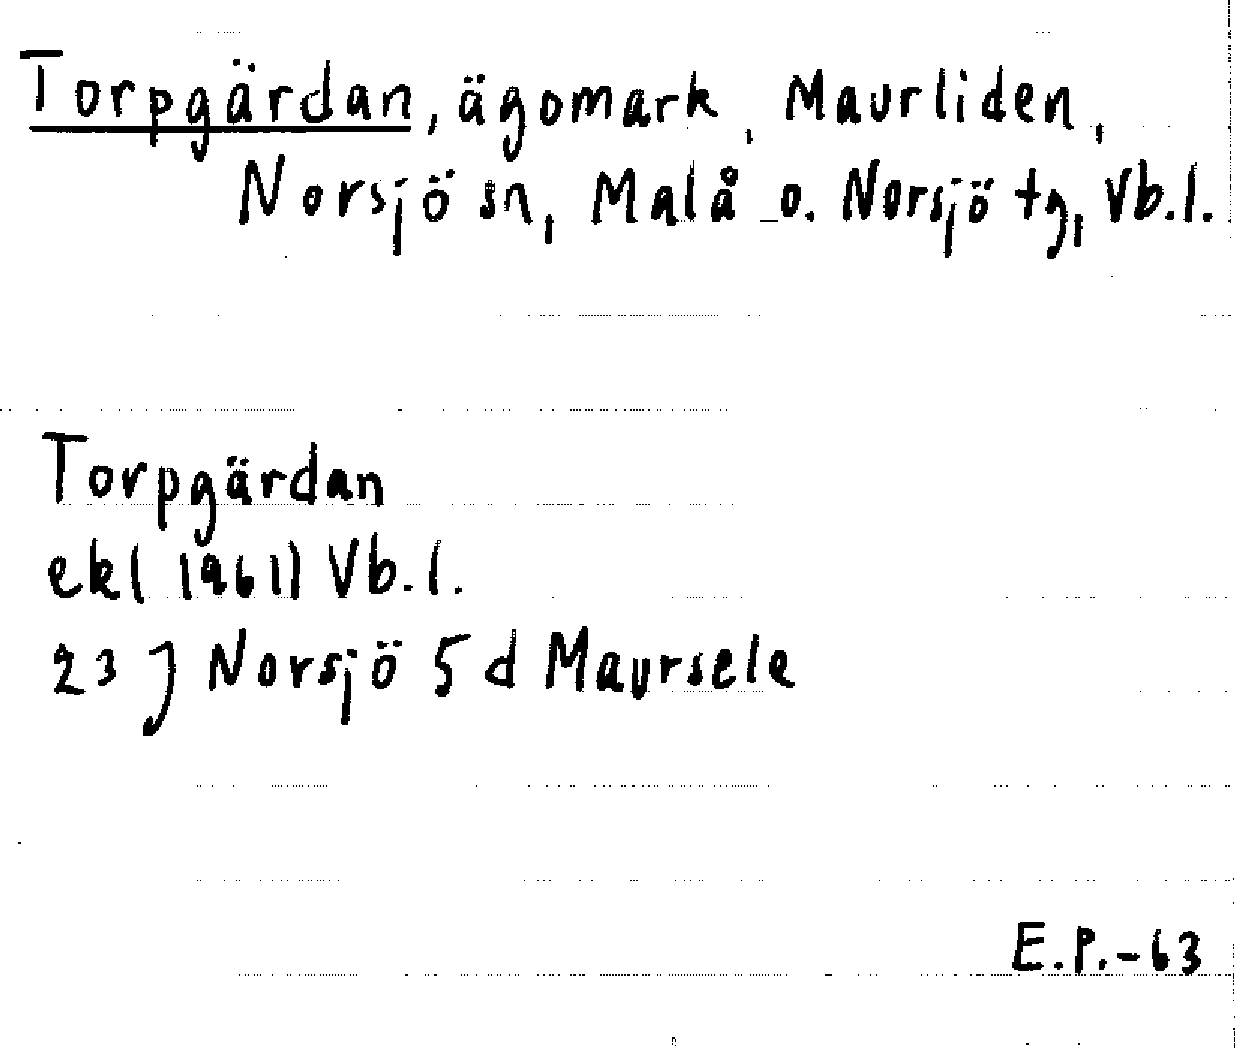 Torpgärdan, ägomark, Maurliden,
Norsjö sn, Malå o. Norsjö tg, Vb.l.
Torpgärdan
ek(1961) Vb.l.
23 J Norsjö 5 d Maursele
E.P.-63